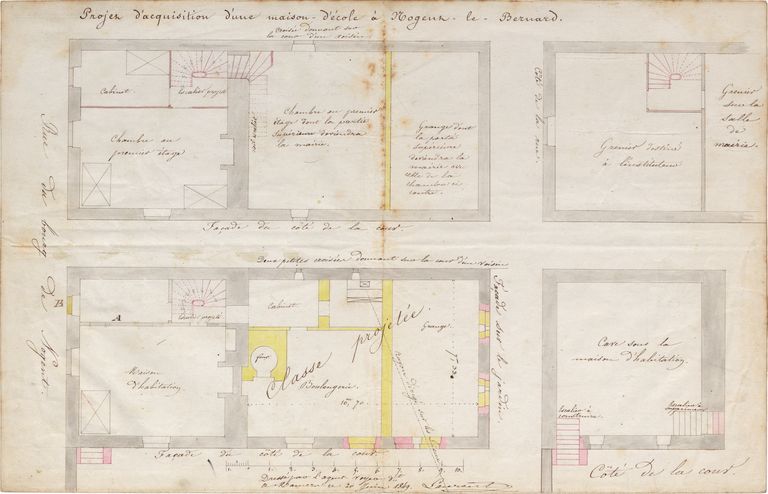 Projet d'acquisition d'une maison-d'école à Nogent-le-Bernard.
Croisée donnant sur
la cour d'un voisin
Cabinet
Escalier projeté
Chambre au
premier étage
Chambre au premier
étage dont la partie
supérieure deviendra
la mairie
Grange dont
la partie
supérieure
deviendra la
mairie avec
celle de la
chambre ci
contre
Côté de la rue
Grenier destiné
à l'instituteur
Grenier
sous la
salle de
mairie
Façade du côté de la cour
Rue du bourg de Nogent
Deux petites croisées donnant sur la cour d'un voisin
B
A
Escalier projeté
Cabinet
Maison
d'habitation
four
Classe projetée
Boulangerie
Grange
10,70
Façade sur le jardin
Cave sous la
maison d'habitation
Escalier à
construire
Escalier à
supprimer
Façade du côté de la cour
Côté de la cour
1 2 3 4 5 6 7 8 9 10
Dressé par l'agent voyer
à Mamers le 20 Juin 1849